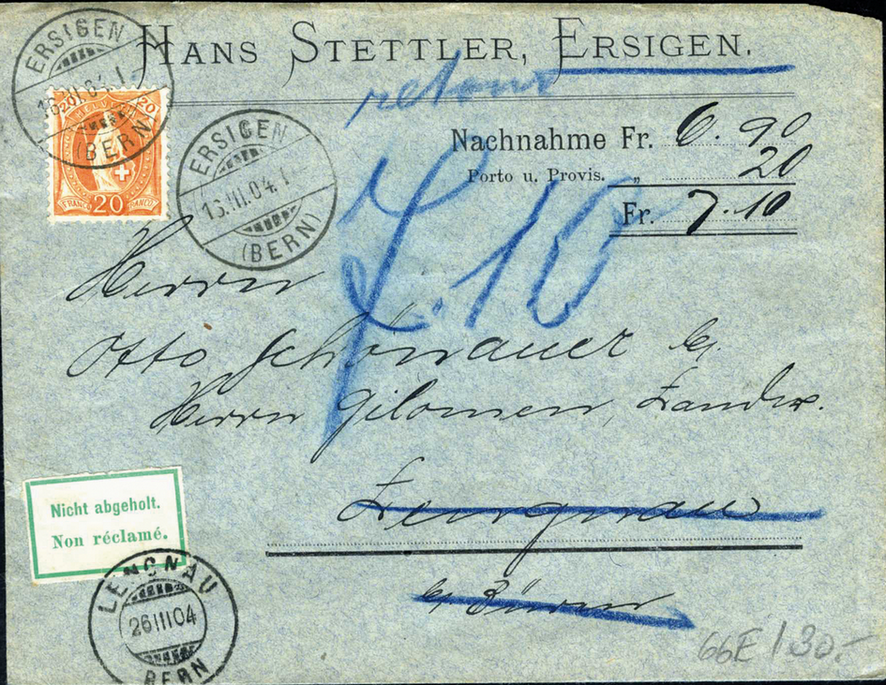 HANS STETTLER, ERSIGEN.
retour
ERSIGEN
16.III.04.I
(BERN)
HELVETIA
20 20
20
FRANCO
ERSIGEN
16.III.04.I
(BERN)
Nachnahme Fr. 6.90
Porto u. Provis. " 20
Fr. 7.10
7.10
Herrn
Otto Schönauer
Herrn Gilomen, Landw.
Lengnau
b/ Büren
Nicht abgeholt.
Non réclamé.
LENGNAU
26 III 04
BERN
66E 130.-